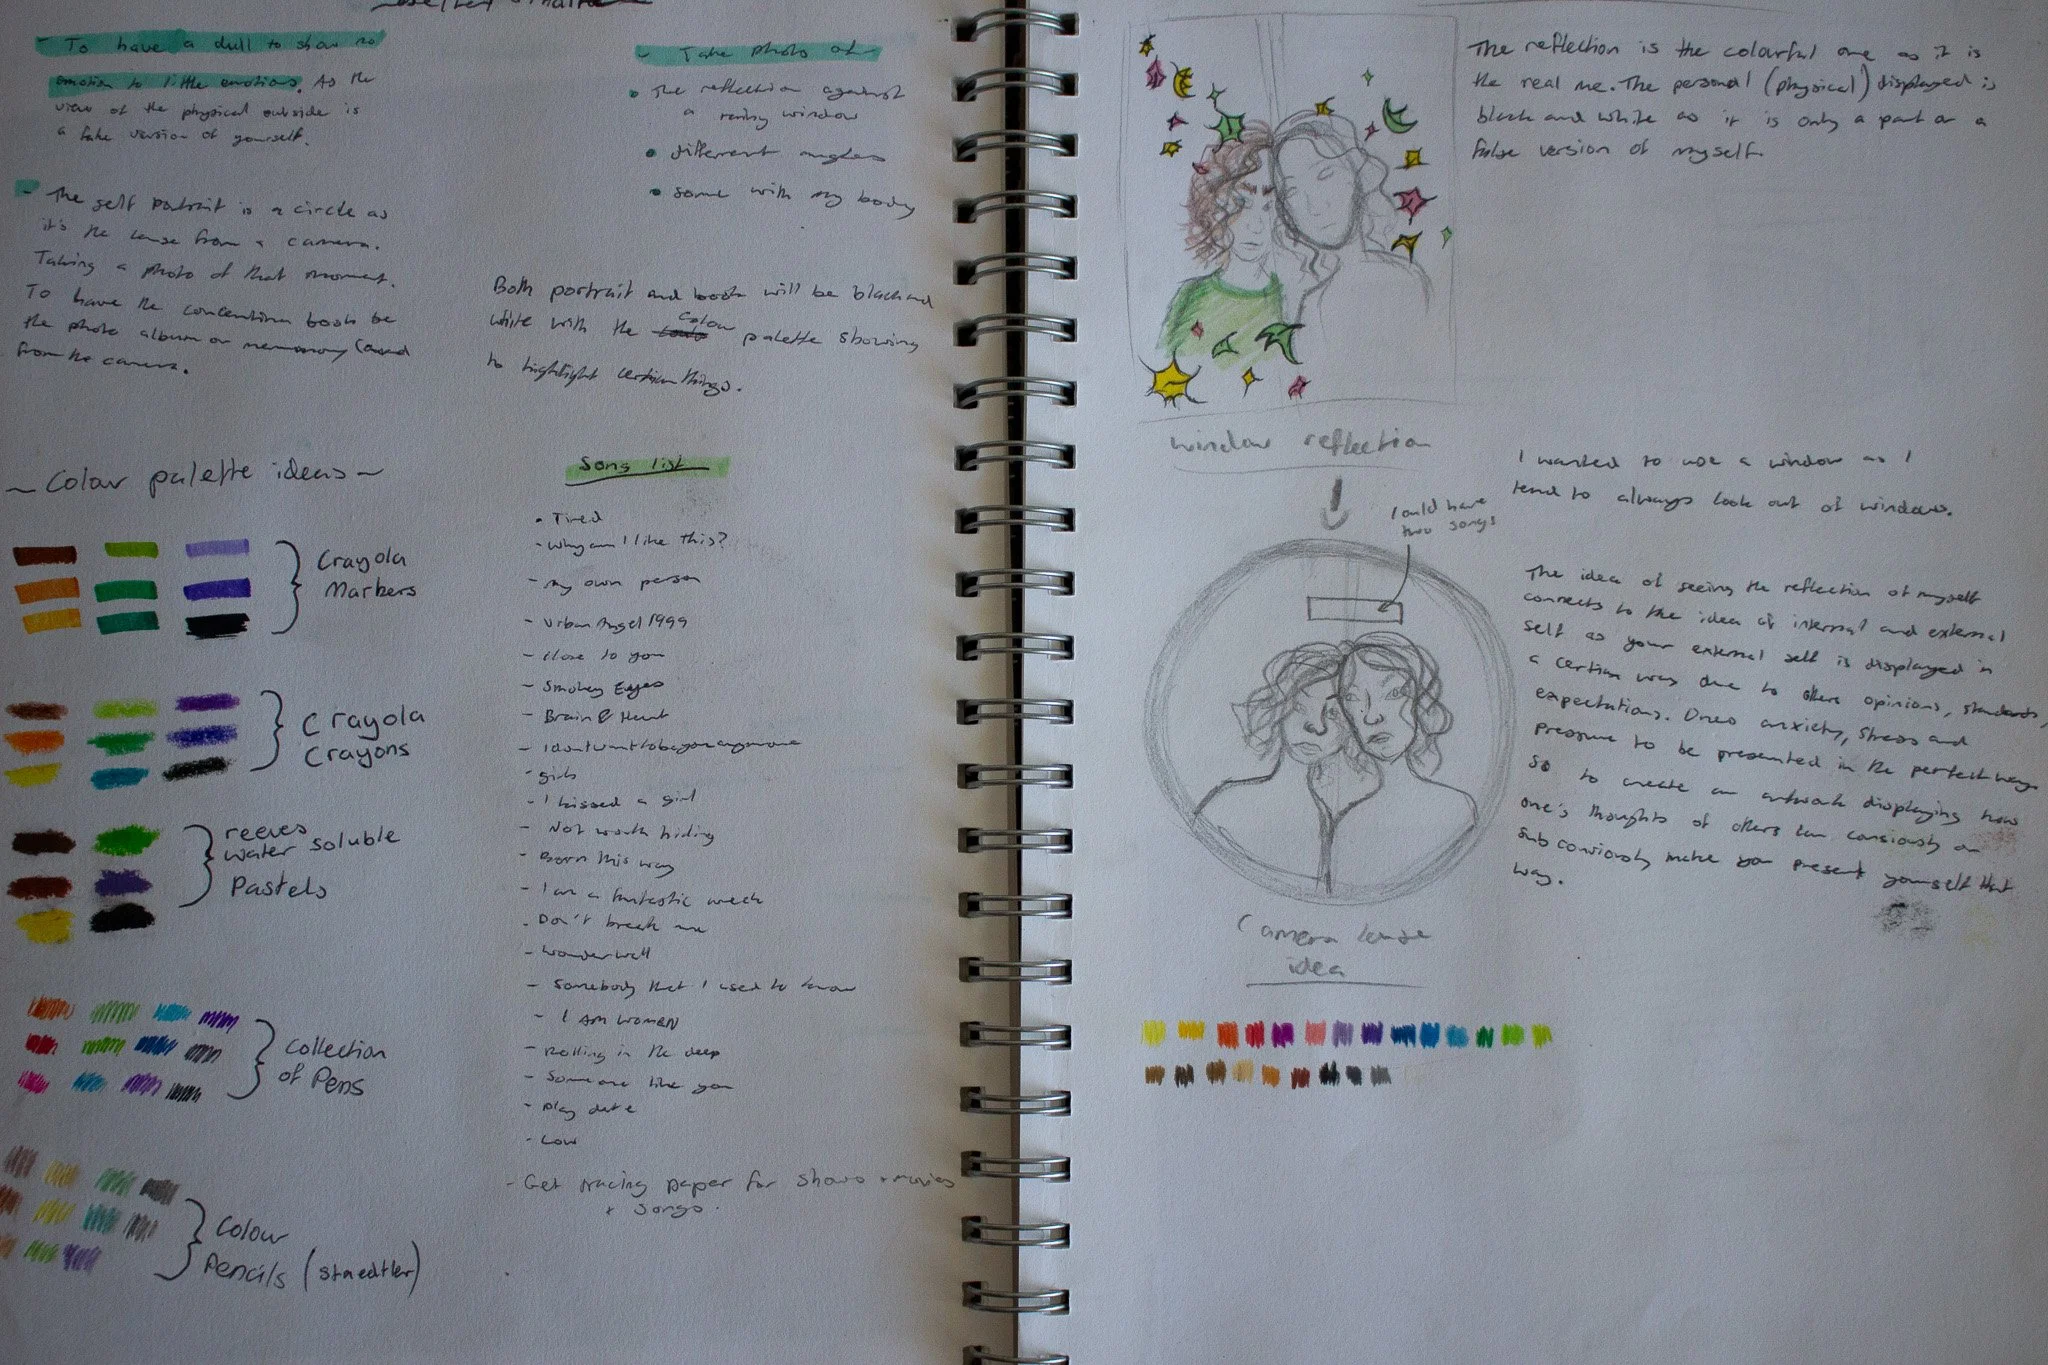 - To have a dull to show no
emotion to little emotions. As the
view of the physical outside is
a fake version of yourself.
- The self portrait is a circle as
it's the lense from a camera.
Taking a photo of that moment.
To have the book be
the photo album or
from the camera.
- Take photo of
• The reflection against
a rainy window
• different angles
• some with my body
Both portrait and book will be black and
white with the colour palette showing
to highlight certian things.
~ Colour palette ideas ~
Crayola
Markers
Crayola
Crayons
reeves
water soluble
Pastels
Collection
of Pens
Colour
Pencils (staedtler)
Song list
• Tired
- Why am I like this?
- my own person
- Urban Angel 1999
- close to you
- Smokey Eyes
- Brain & Heart
- idontwanttobeyouanymore
- girls
- I kissed a girl
- Not worth hiding
- Born this way
- I am a fantastic
- Don't break me
- wonderwall
- Somebody that I used to know
- I AM WOMEN
- Rolling in the deep
- Someone like you
- play date
- Low
- Get tracing paper for shows + movies
+ songs.
The reflection is the colourful one as it is
the real me. The personal (physical) displayed is
black and white as it is only a part or a
false version of myself.
window reflection
I wanted to use a window as I
tend to always look out of windows.
could have
two songs
The idea of seeing the reflection of myself
connects to the idea of internal and external
self as your external self is displayed in
a certian way due to others opinions, standards,
expectations. Ones anxiety, stress and
pressure to be presented in the perfect way
so to create an artwork displaying how
one's thoughts of others can consiously or
sub consiously make you present yourself that
way.
Camera lense
idea